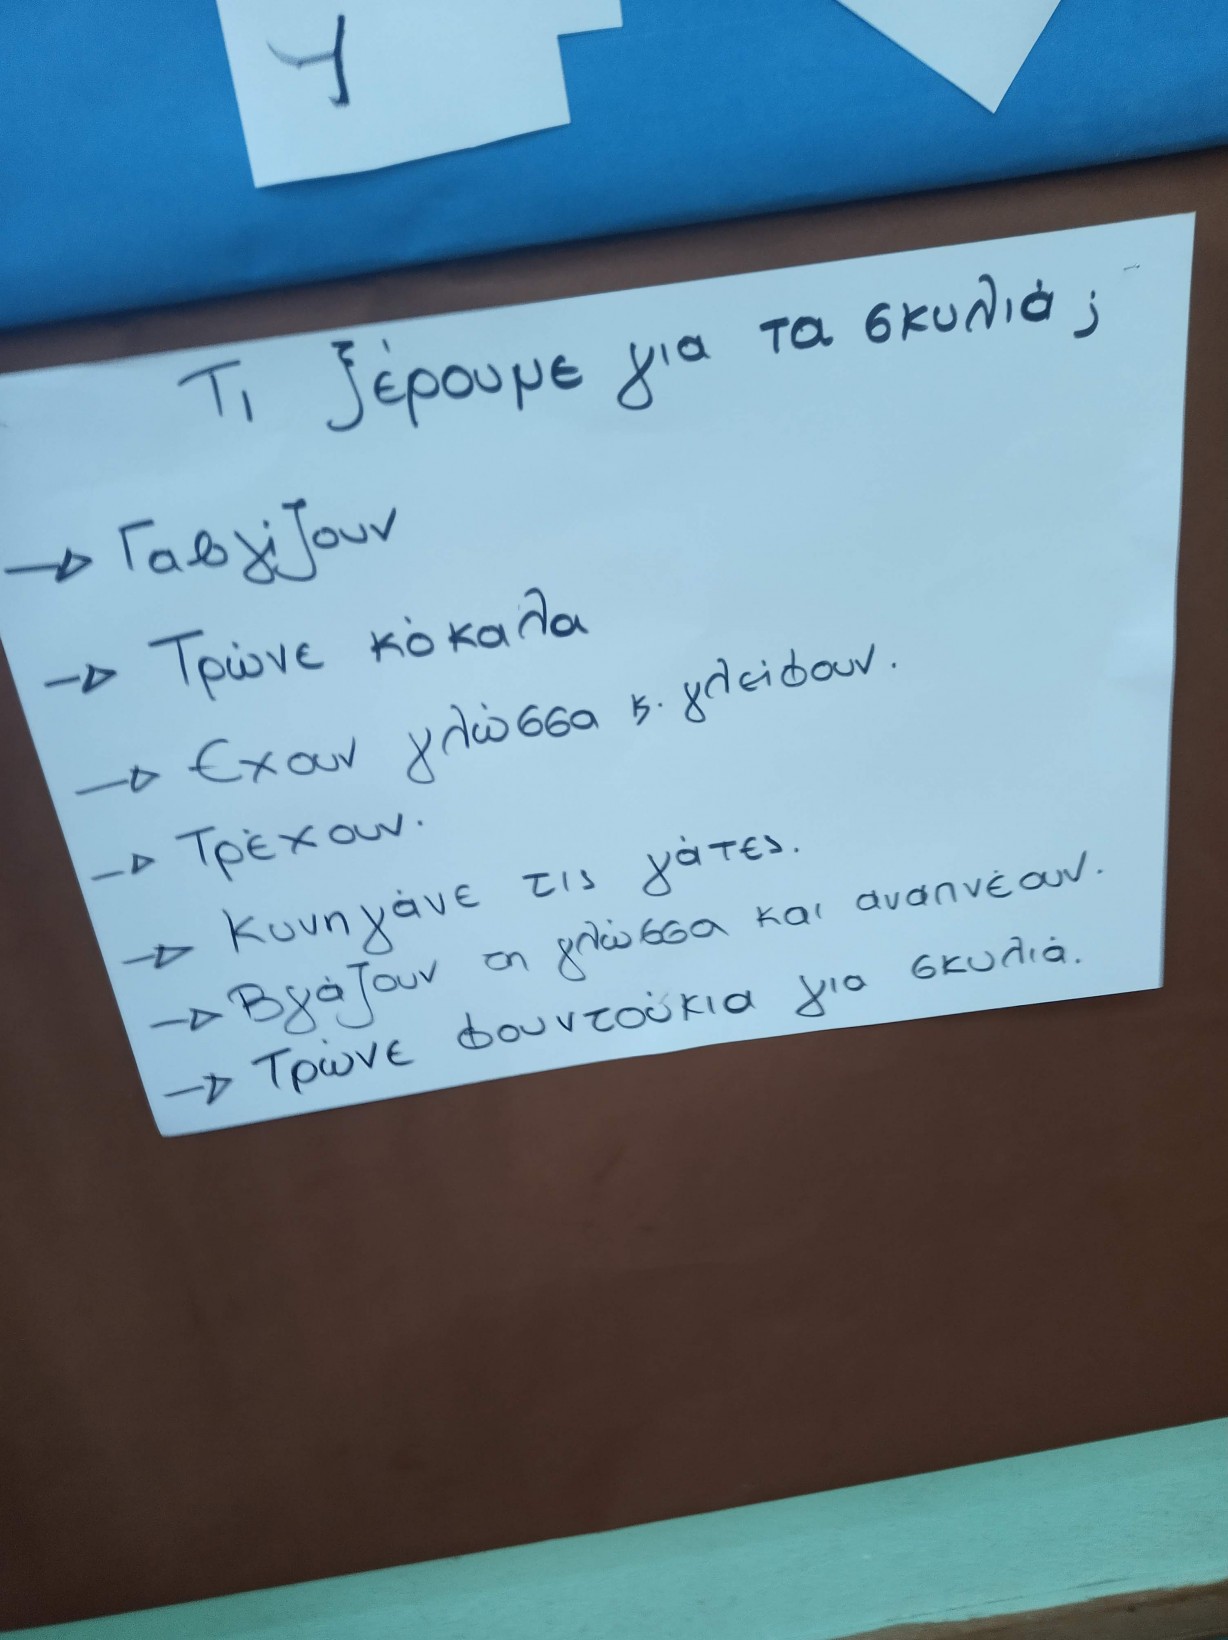 Τι ξέρουμε για τα σκυλιά;
→ Γαβγίζουν
→ Τρώνε κόκαλα
→ Εχουν γλώσσα κ. γλείφουν.
→ Τρέχουν.
→ Κυνηγάνε τις γάτες.
→ Βγάζουν τη γλώσσα και αναπνέουν.
→ Τρώνε φουντούκια για σκυλιά.